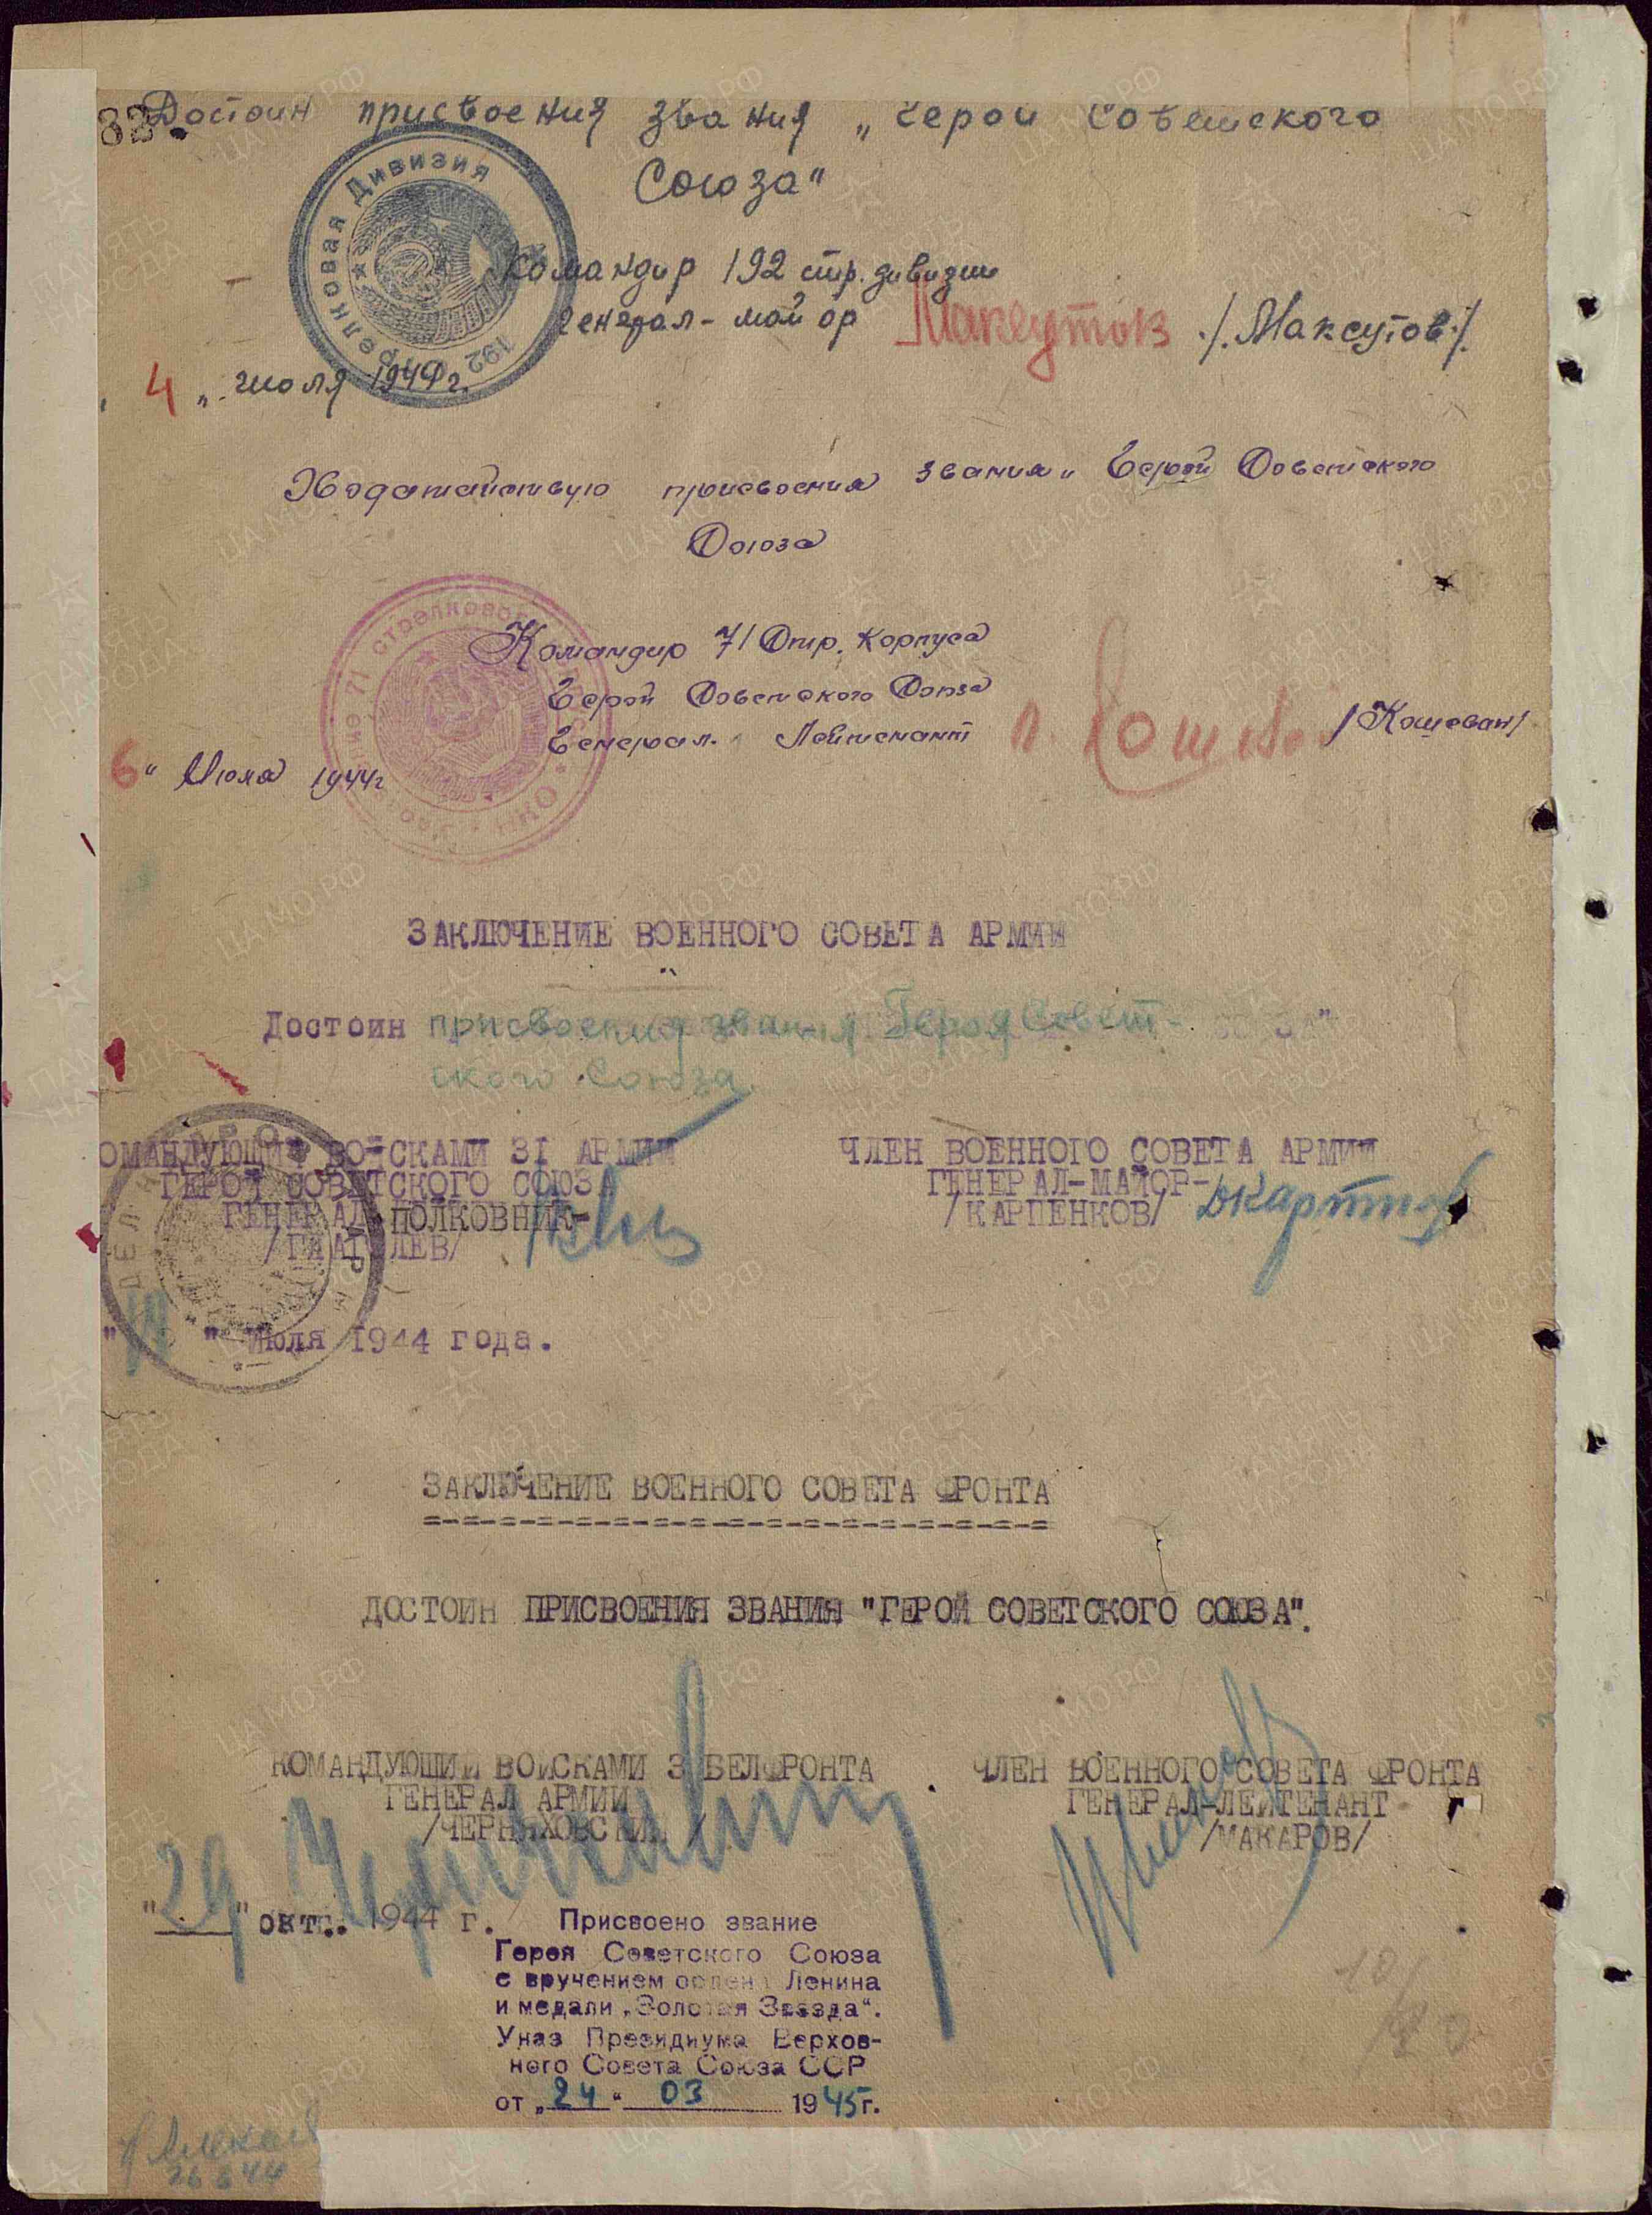 32.
Достоин присвоения звания „Герой Советского
Союза"
Стрелковая Дивизия 192
Командир 192 стр. дивизии
Генерал-майор Максутов /.Максутов./
„4„ июля 1944г.
Ходатайствую присвоения звания „Герой Советского
Союза
Командир 71 Стр. Корпуса
Герой Советского Союза
Генерал. Лейтенант /Кошевой/
6" Июля 1944г
ЗАКЛЮЧЕНИЕ ВОЕННОГО СОВЕТА АРМИИ
Достоин присвоения звания Героя Совет-
ского Союза.
ОМАНДУЮЩИЙ ВОЙСКАМИ 31 АРМИИ
ГЕРОЙ СОВЕТСКОГО СОЮЗА
ГЕНЕРАЛ-ПОЛКОВНИК-
/ГЛАГОЛЕВ/
ЧЛЕН ВОЕННОГО СОВЕТА АРМИИ
ГЕНЕРАЛ-МАЙОР-
/КАРПЕНКОВ/
" " Июля 1944 года.
ЗАКЛЮЧЕНИЕ ВОЕННОГО СОВЕТА ФРОНТА
=-=-=-=-=-=-=-=-=-=-=-=-=-=-=-=-=
ДОСТОИН ПРИСВОЕНИЯ ЗВАНИЯ "ГЕРОЙ СОВЕТСКОГО СОЮЗА".
КОМАНДУЮЩИЙ ВОЙСКАМИ 3 БЕЛФРОНТА
ГЕНЕРАЛ АРМИИ
/ЧЕРНЯХОВСКИЙ/
ЧЛЕН ВОЕННОГО СОВЕТА ФРОНТА
ГЕНЕРАЛ-ЛЕЙТЕНАНТ
/МАКАРОВ/
"29" окт.. 1944 г.
Присвоено звание
Героя Советского Союза
с вручением ордена Ленина
и медали „Золотая Звезда".
Указ Президиума Верхов-
ного Совета Союза ССР
от „24" 03 1945г.